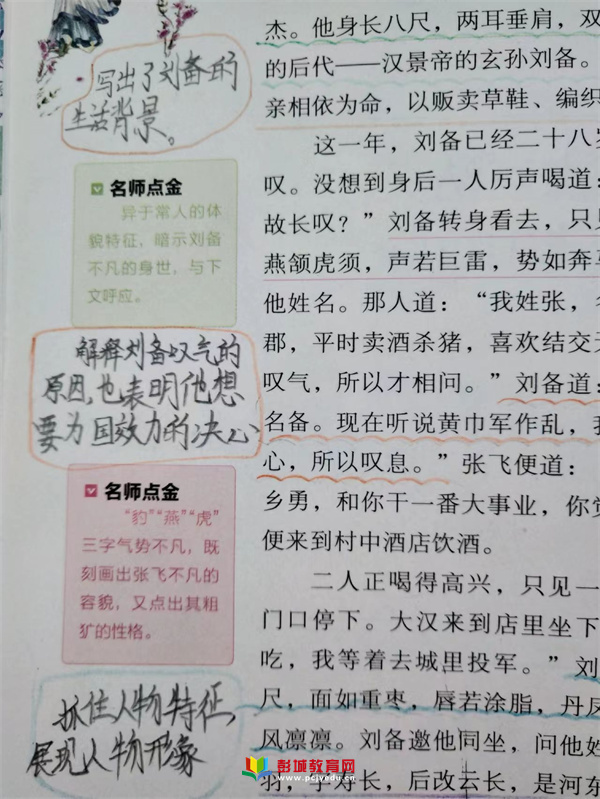 写出了刘备的
生活背景。
名师点金
异于常人的体
貌特征，暗示刘备
不凡的身世，与下
文呼应。
解释刘备叹气的
原因，也表明他想
要为国效力的决心
名师点金
“豹”“燕”“虎”
三字气势不凡，既
刻画出张飞不凡的
容貌，又点出其粗
犷的性格。
抓住人物特征，
展现人物形象
杰。他身长八尺，两耳垂肩，双
的后代——汉景帝的玄孙刘备。
亲相依为命，以贩卖草鞋、编织
这一年，刘备已经二十八岁
叹。没想到身后一人厉声喝道：
故长叹？”刘备转身看去，只见
燕颔虎须，声若巨雷，势如奔马
他姓名。那人道：“我姓张，名
郡，平时卖酒杀猪，喜欢结交天
叹气，所以才相问。”刘备道：
名备。现在听说黄巾军作乱，我
心，所以叹息。”张飞便道：
乡勇，和你干一番大事业，你觉
便来到村中酒店饮酒。
二人正喝得高兴，只见一
门口停下。大汉来到店里坐下
吃，我等着去城里投军。”刘
尺，面如重枣，唇若涂脂，丹凤
风凛凛。刘备邀他同坐，问他姓
羽，字寿长，后改云长，是河东
彭城教育网
www.pcjyedu.cn